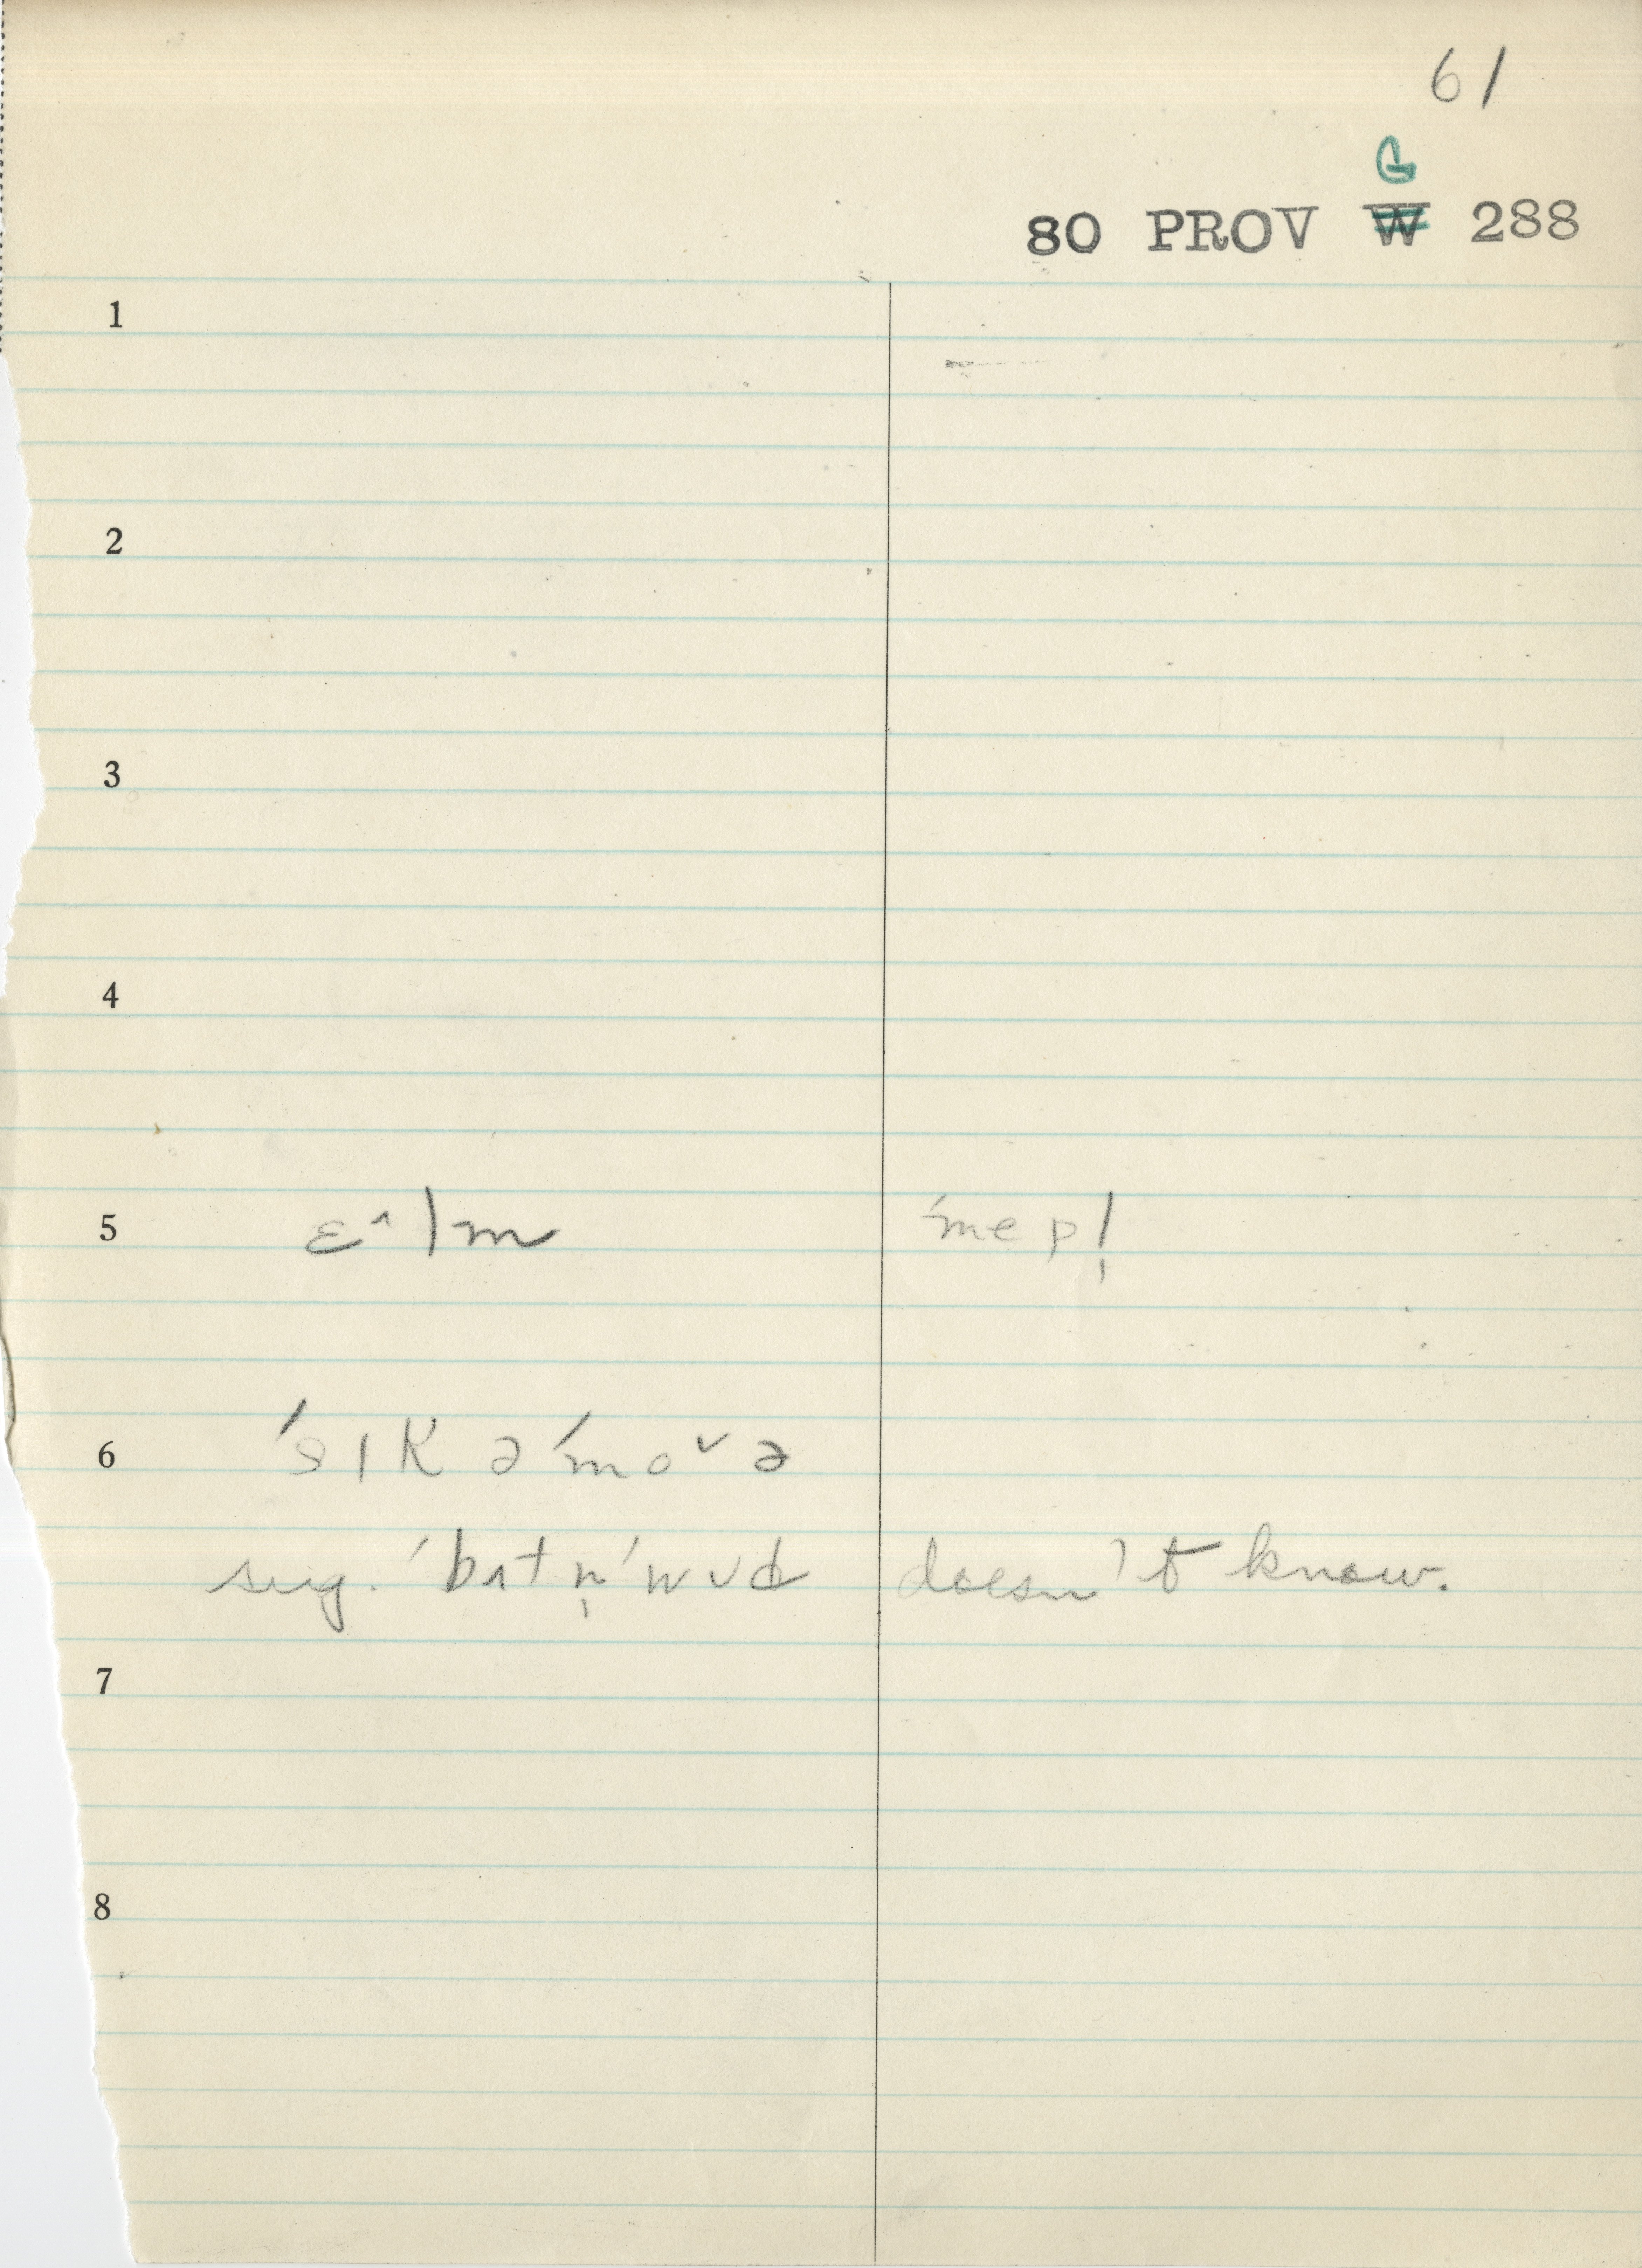 61
G
80 PROV W 288
1
2
3
4
5 ɛ^lm ˈmepl̩
6 ˈsɪkəˈmoˇə
sug. ˈbʌtn̩ˈwud doesn't know.
7
8